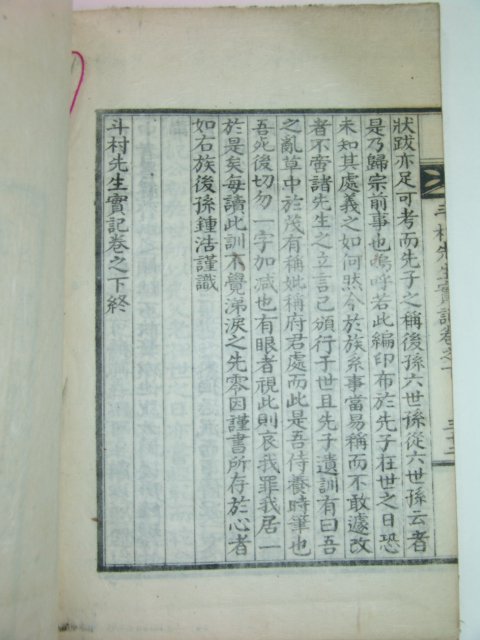 斗村先生實記卷之下
三十三
狀跋亦足可考而先子之稱後孫六世孫從六世孫云者
是乃歸宗前事也嗚呼若此編印布於先子在世之日恐
未知其處義之如何然今於族系事當易稱而不敢遽改
者不啻諸先生之立言已頒行于世且先子遺訓有曰吾
之亂草中於茂有稱妣稱府君處而此是吾侍養時筆也
吾死後切勿一字加减也有眼者視此則哀我罪我居一
於是矣每讀此訓不覺涕淚之先零因謹書所存於心者
如右族後孫鍾浩謹識
斗村先生實記卷之下終